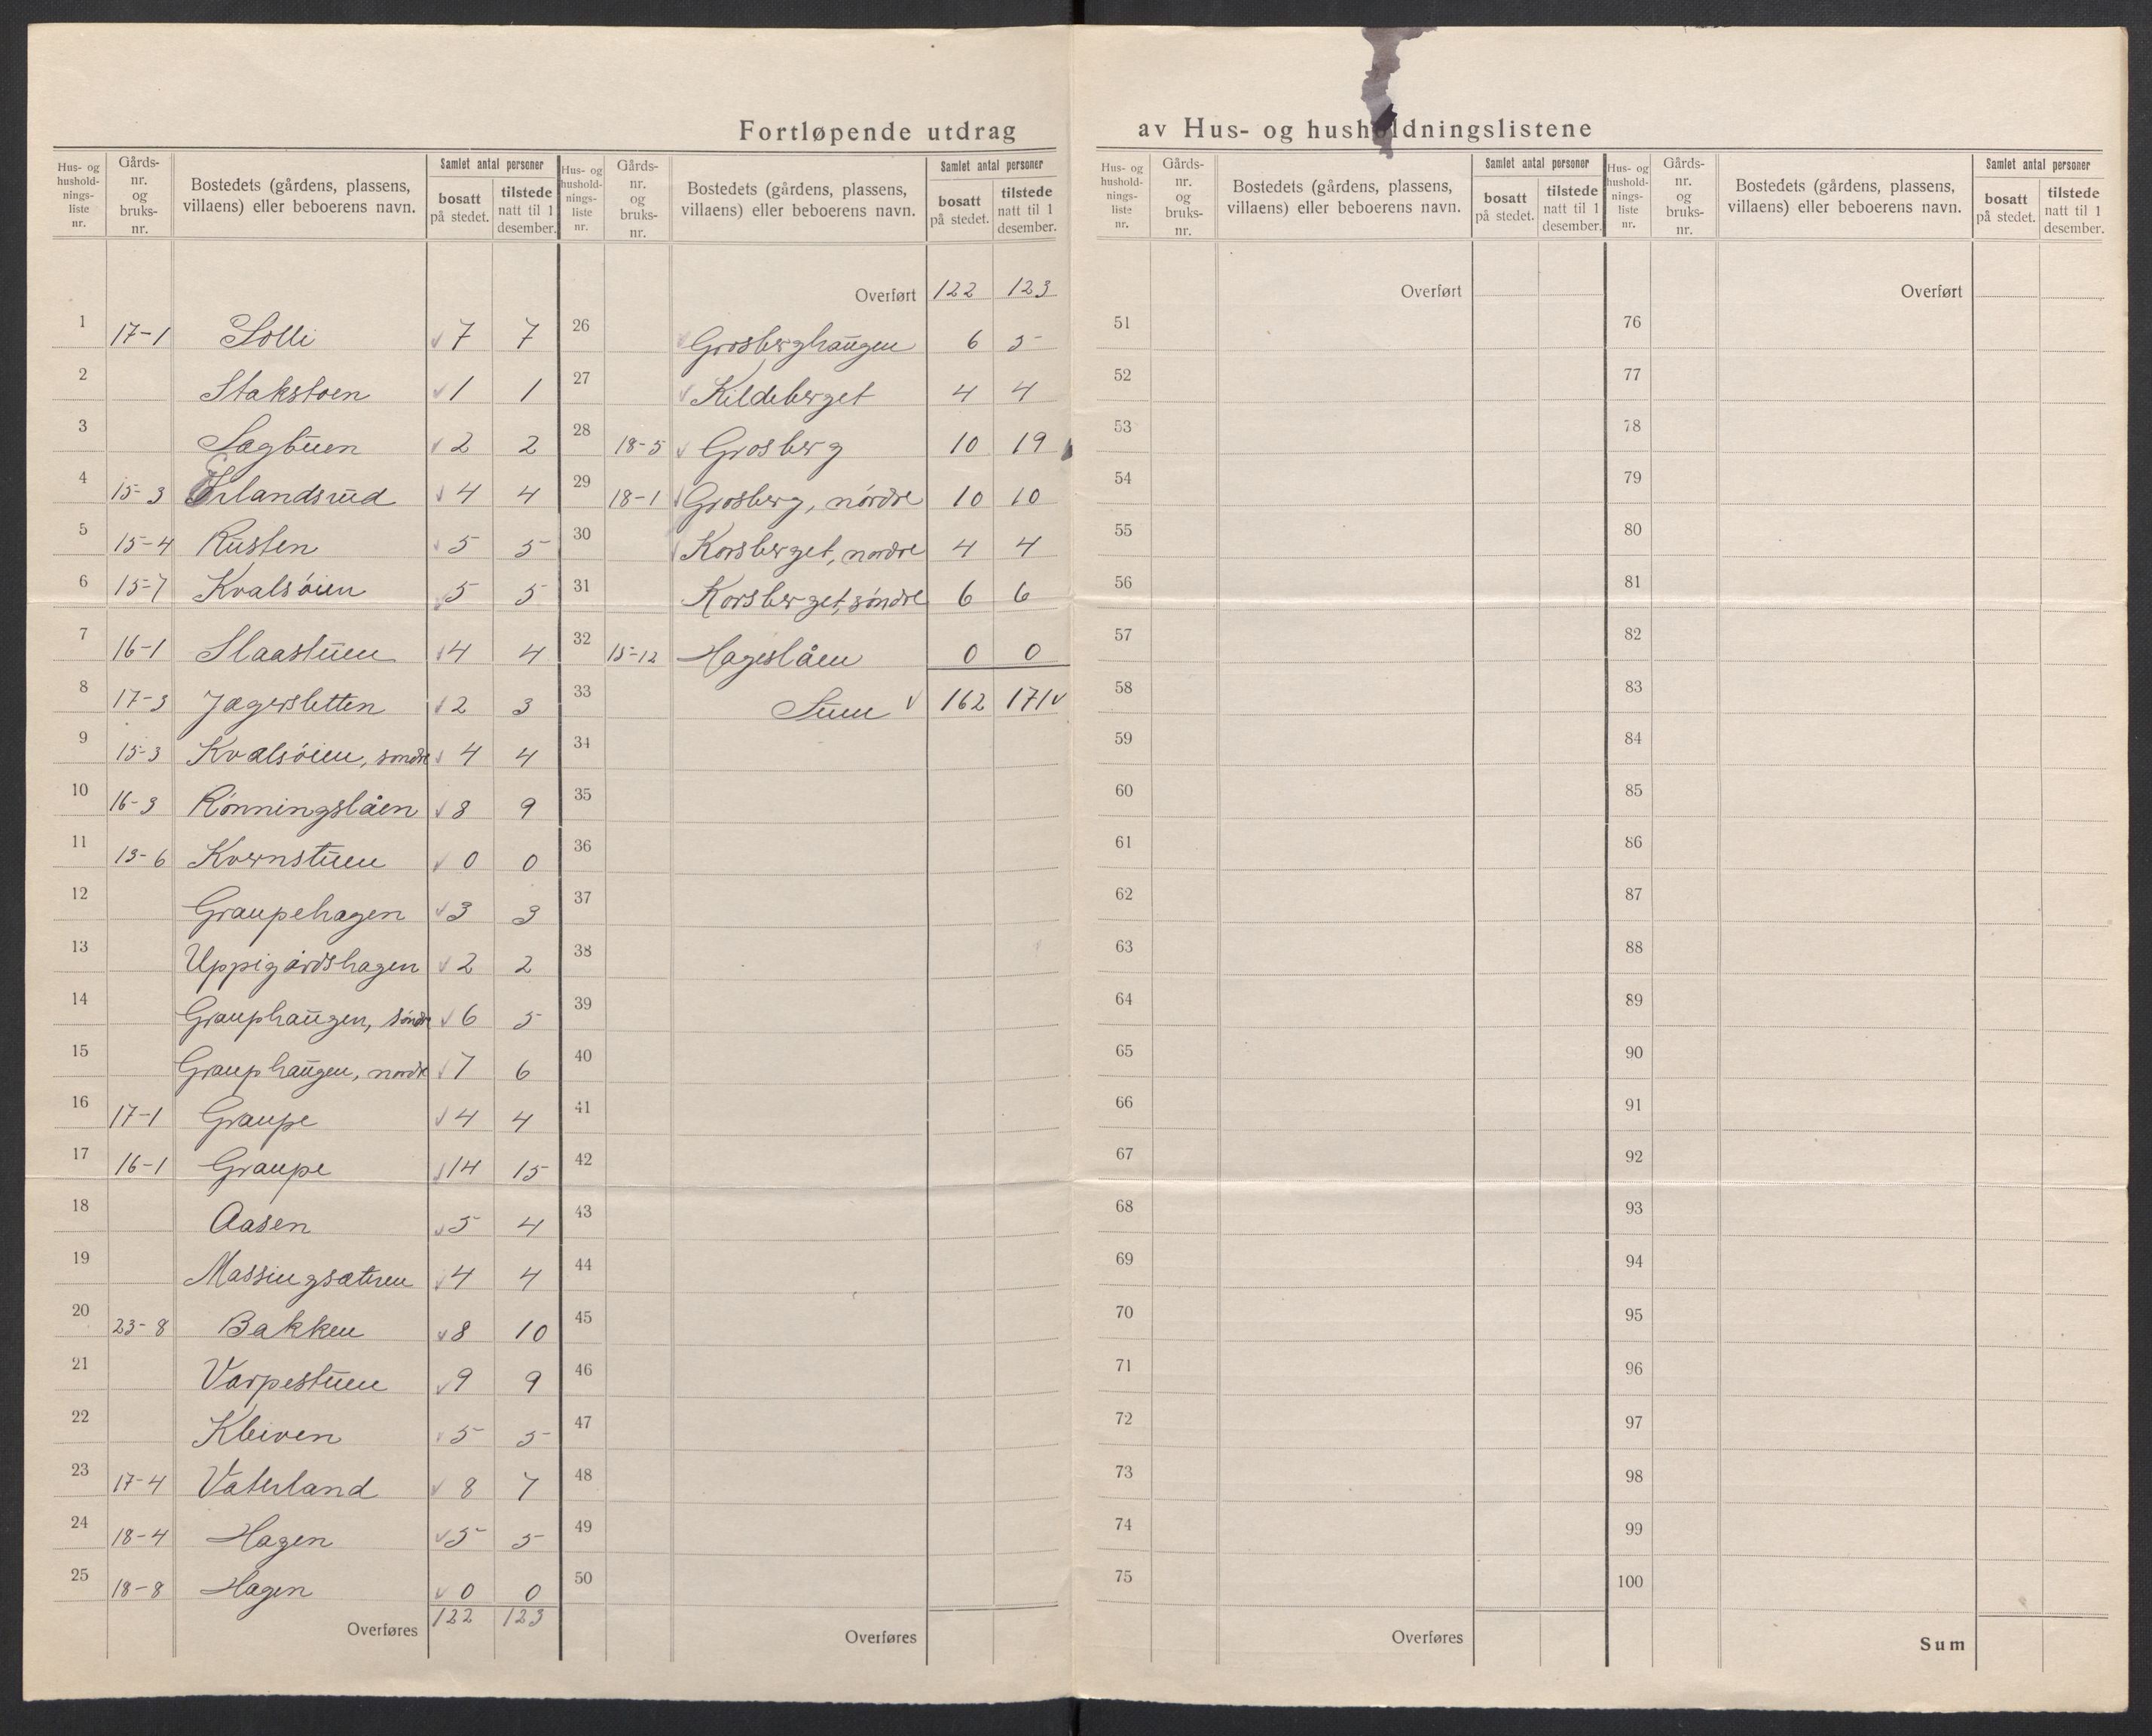 Fortløpende utdrag av Hus- og husholdningslistene
Hus- og husholdnings-liste nr. | Gårds-nr. og bruks-nr. | Bostedets (gårdens, plassens, villaens) eller beboerens navn. | Samlet antal personer | bosatt på stedet. | tilstede natt til 1 desember.
1 17-1 Solli 7 7
2 Stakstoen 1 1
3 Sagbuen 2 2
4 15-3 Erlandsrud 4 4
5 15-4 Rusten 5 5
6 15-7 Kvalsöien 5 5
7 16-1 Slaastuen 4 4
8 17-3 Jægersletten 2 3
9 15-3 Kvalsöien, söndre 4 4
10 16-3 Rönningslåen 8 9
11 13-6 Kvernstuen 0 0
12 Graupehagen 3 3
13 Uppigårdshagen 2 2
14 Grauphaugen, söndr 6 5
15 Grauphaugen, nordr 7 6
16 17-1 Graupe 4 4
17 16-1 Graupe 14 15
18 Aasen 5 4
19 Massingsæteren 4 4
20 23-8 Bakken 8 10
21 Varpestuen 9 9
22 Kleiven 5 5
23 17-4 Vaterland 8 7
24 18-4 Hagen 5 5
25 18-8 Hagen 0 0
Overføres 122 123
Hus- og husholdnings-liste nr. | Gårds-nr. og bruks-nr. | Bostedets (gårdens, plassens, villaens) eller beboerens navn. | Samlet antal personer | bosatt på stedet. | tilstede natt til 1 desember.
Overført 122 123
26 Grosberghaugen 6 5
27 Kildeberget 4 4
28 18-5 Grosberg 10 19
29 18-1 Grosberg, nördre 10 10
30 Korsberget, nordre 4 4
31 Korsberget, söndre 6 6
32 15-12 Hageslåen 0 0
33 Sum 162 171
34
35
36
37
38
39
40
41
42
43
44
45
46
47
48
49
50
Overføres
Hus- og husholdnings-liste nr. | Gårds-nr. og bruks-nr. | Bostedets (gårdens, plassens, villaens) eller beboerens navn. | Samlet antal personer | bosatt på stedet. | tilstede natt til 1 desember.
Overført
51
52
53
54
55
56
57
58
59
60
61
62
63
64
65
66
67
68
69
70
71
72
73
74
75
Overføres
Hus- og husholdnings-liste nr. | Gårds-nr. og bruks-nr. | Bostedets (gårdens, plassens, villaens) eller beboerens navn. | Samlet antal personer | bosatt på stedet. | tilstede natt til 1 desember.
Overført
76
77
78
79
80
81
82
83
84
85
86
87
88
89
90
91
92
93
94
95
96
97
98
99
100
Sum